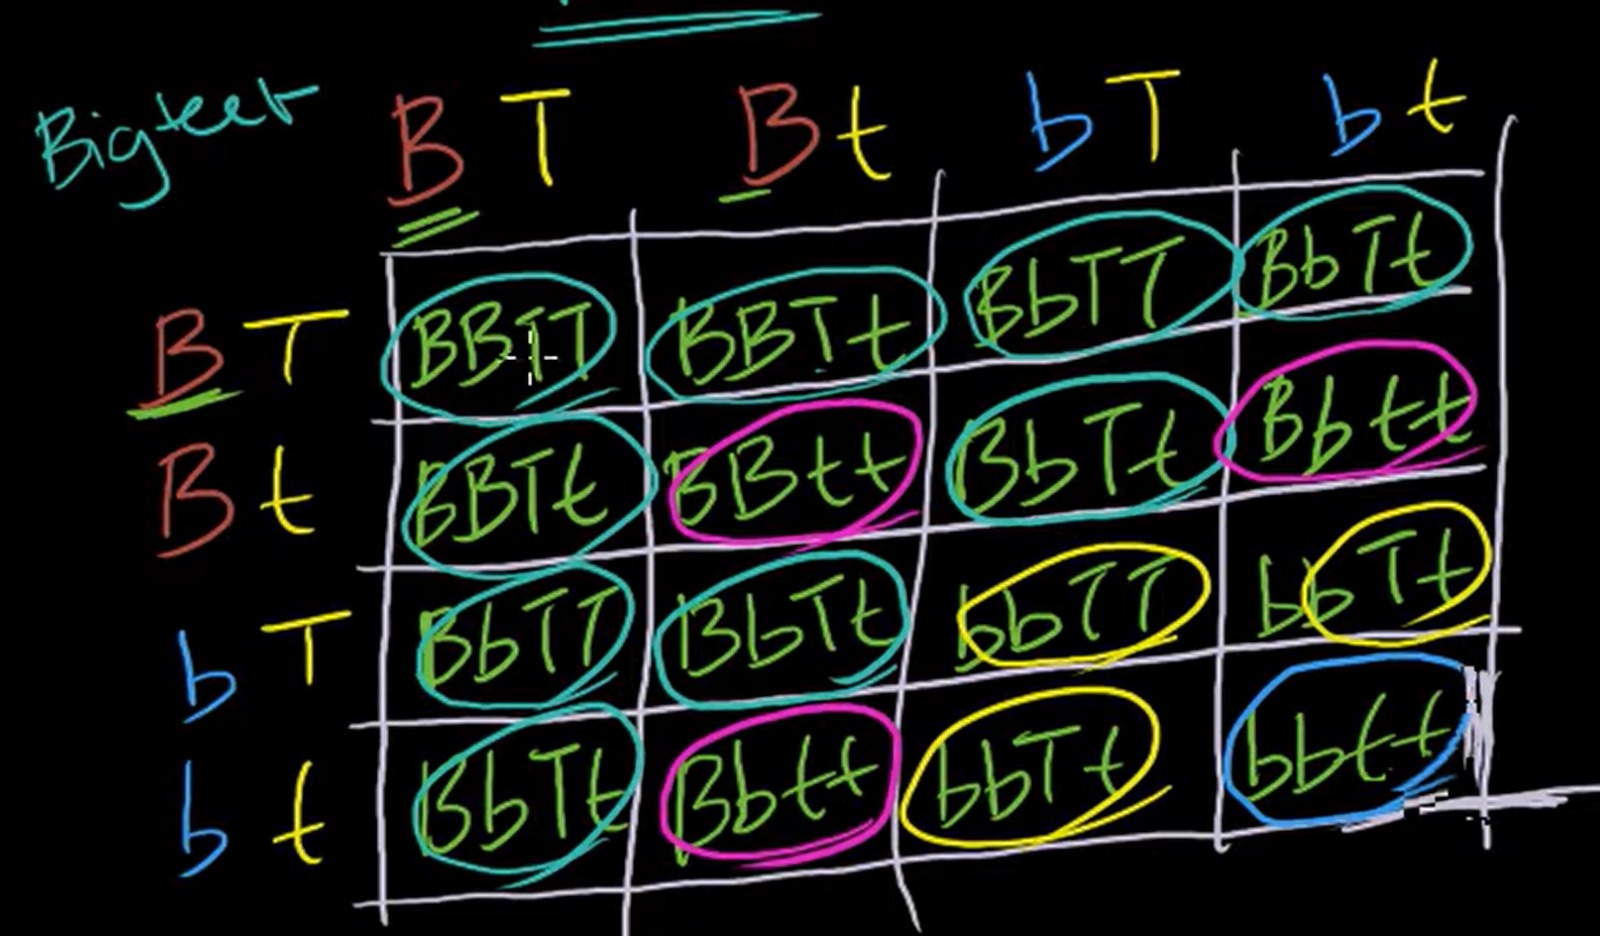 Big teet
B T B t b T b t
B T BBTT BBTt BbTT BbTt
B t BBTt BBtt BbTt Bbtt
b T BbTT BbTt bbTT bbTt
b t BbTt Bbtt bbTt bbtt